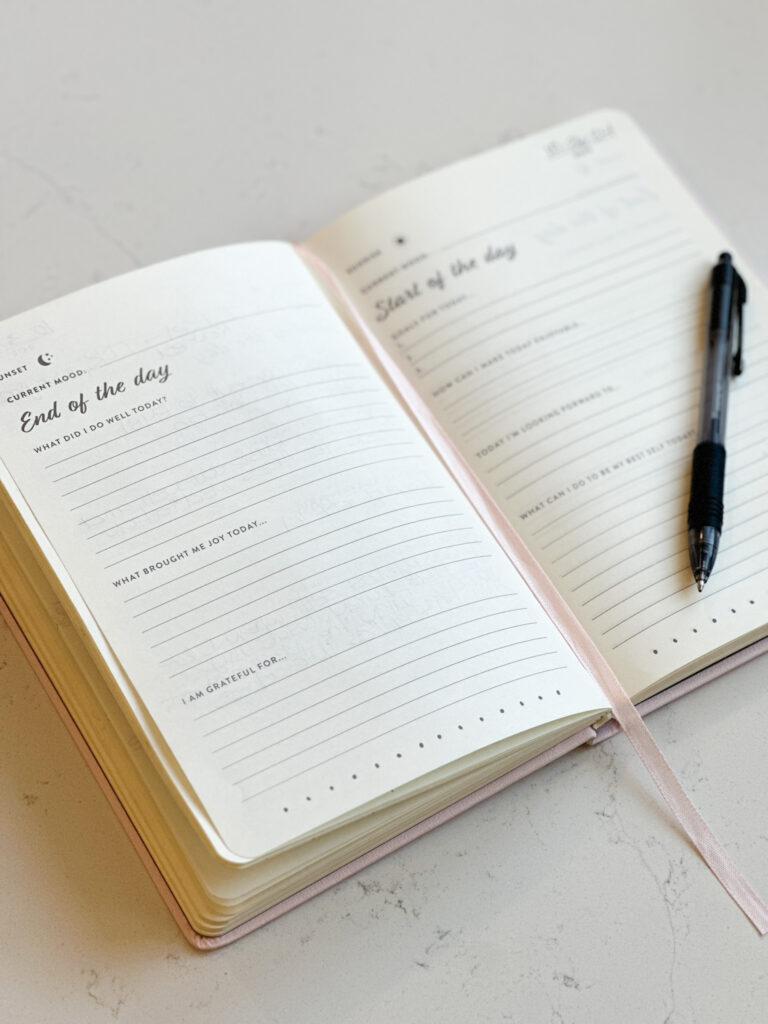 SUNSET
CURRENT MOOD:
End of the day
WHAT DID I DO WELL TODAY?
WHAT BROUGHT ME JOY TODAY...
I AM GRATEFUL FOR...
SUNRISE
CURRENT MOOD:
Start of the day
GOALS FOR TODAY...
HOW CAN I MAKE TODAY ENJOYABLE...
TODAY I'M LOOKING FORWARD TO...
WHAT CAN I DO TO BE MY BEST SELF TODAY?